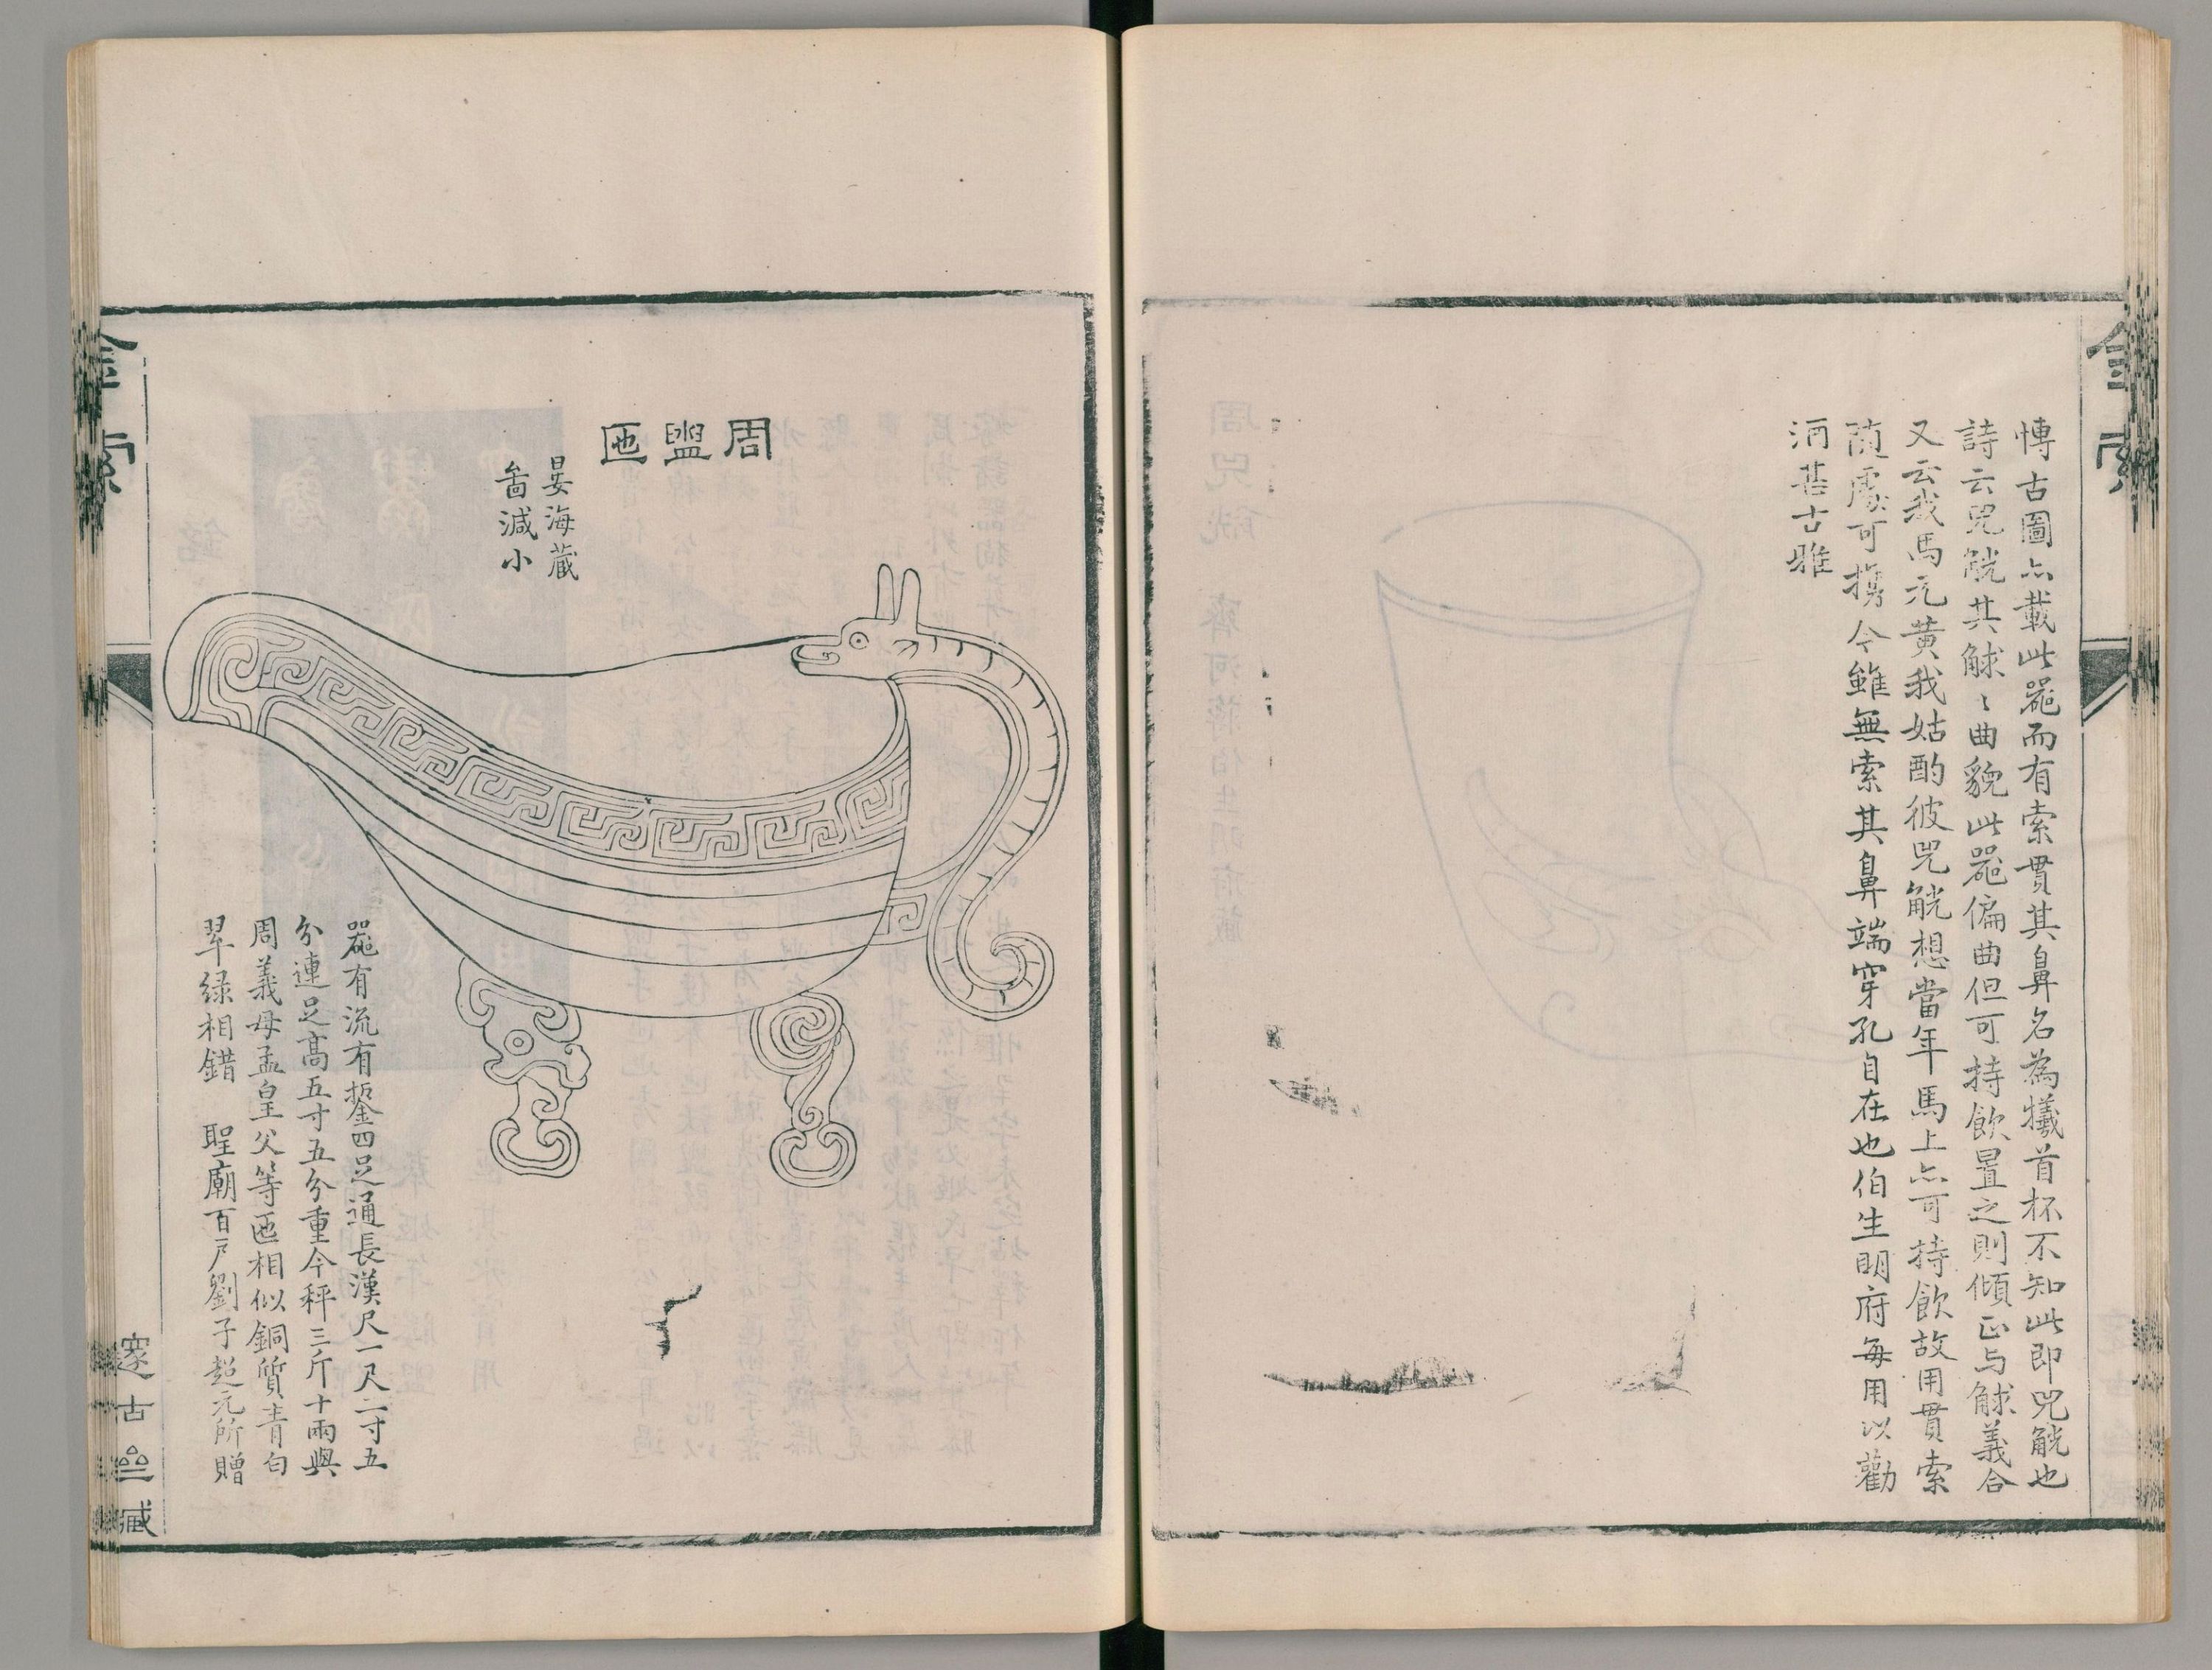 金索
博古圖亦載此噐而有索貫其鼻名為犧首杯不知此即兕觥也
詩云兕觥其觩〻曲貌此噐偏曲但可持飲置之則傾正与觩義合
又云我馬元黄我姑酌彼兕觥想當年馬上亦可持飲故用貫索
随處可携今雖無索其鼻端穿孔自在也伯生明府每用以勸
酒甚古雅
周盥匜
晏海藏
啚減小
噐有流有鋬四足通長漢尺一尺二寸五
分連足高五寸五分重今秤三斤十兩與
周義母孟皇父等匜相似銅質青白
翠緑相錯　聖廟百戶劉子超元所贈
金索
邃古亝藏